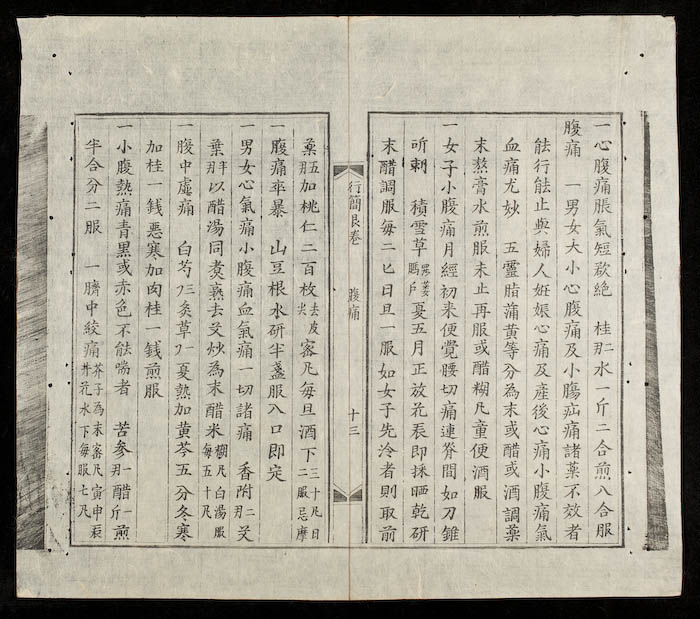 一心腹痛脹氣短欲絶　桂二刄水一斤二合煎八合服
腹痛　一男女大小心腹痛及小腸疝痛諸藥不效者
能行能止與婦人妊娠心痛及產後心痛小腹痛氣
血痛尤妙　五靈脂蒲黃等分為末或醋或酒調藥
末熬膏水煎服未止再服或醋糊凡童便酒服
一女子小腹痛月經初来便覺腰切痛連脊間如刀錐
所刺　積雪草夏五月正放花表即採晒乾研
末醋調服每二匕日旦一服如女子先冷者則取前
行簡良卷　腹痛　十三
藥五刄加桃仁二百枚去皮尖蜜凡每旦酒下三十凡日二服忌摩
一腹痛卒暴　山豆根水研半盞服入口即定
一男女心氣痛小腹痛血氣痛一切諸痛　香附二刄艾
葉半刄以醋湯同煮熟去艾炒為末醋米糊凡白湯服每五十凡
一腹中虛痛　白芍三炙草一夏熱加黃芩五分冬寒
加桂一錢惡寒加肉桂一錢煎服
一小腹熱痛青黑或赤色不能喘者　苦參一刄醋一斤煎
半合分二服　一臍中絞痛芥子為末蜜凡寅申井花水下每服七凡